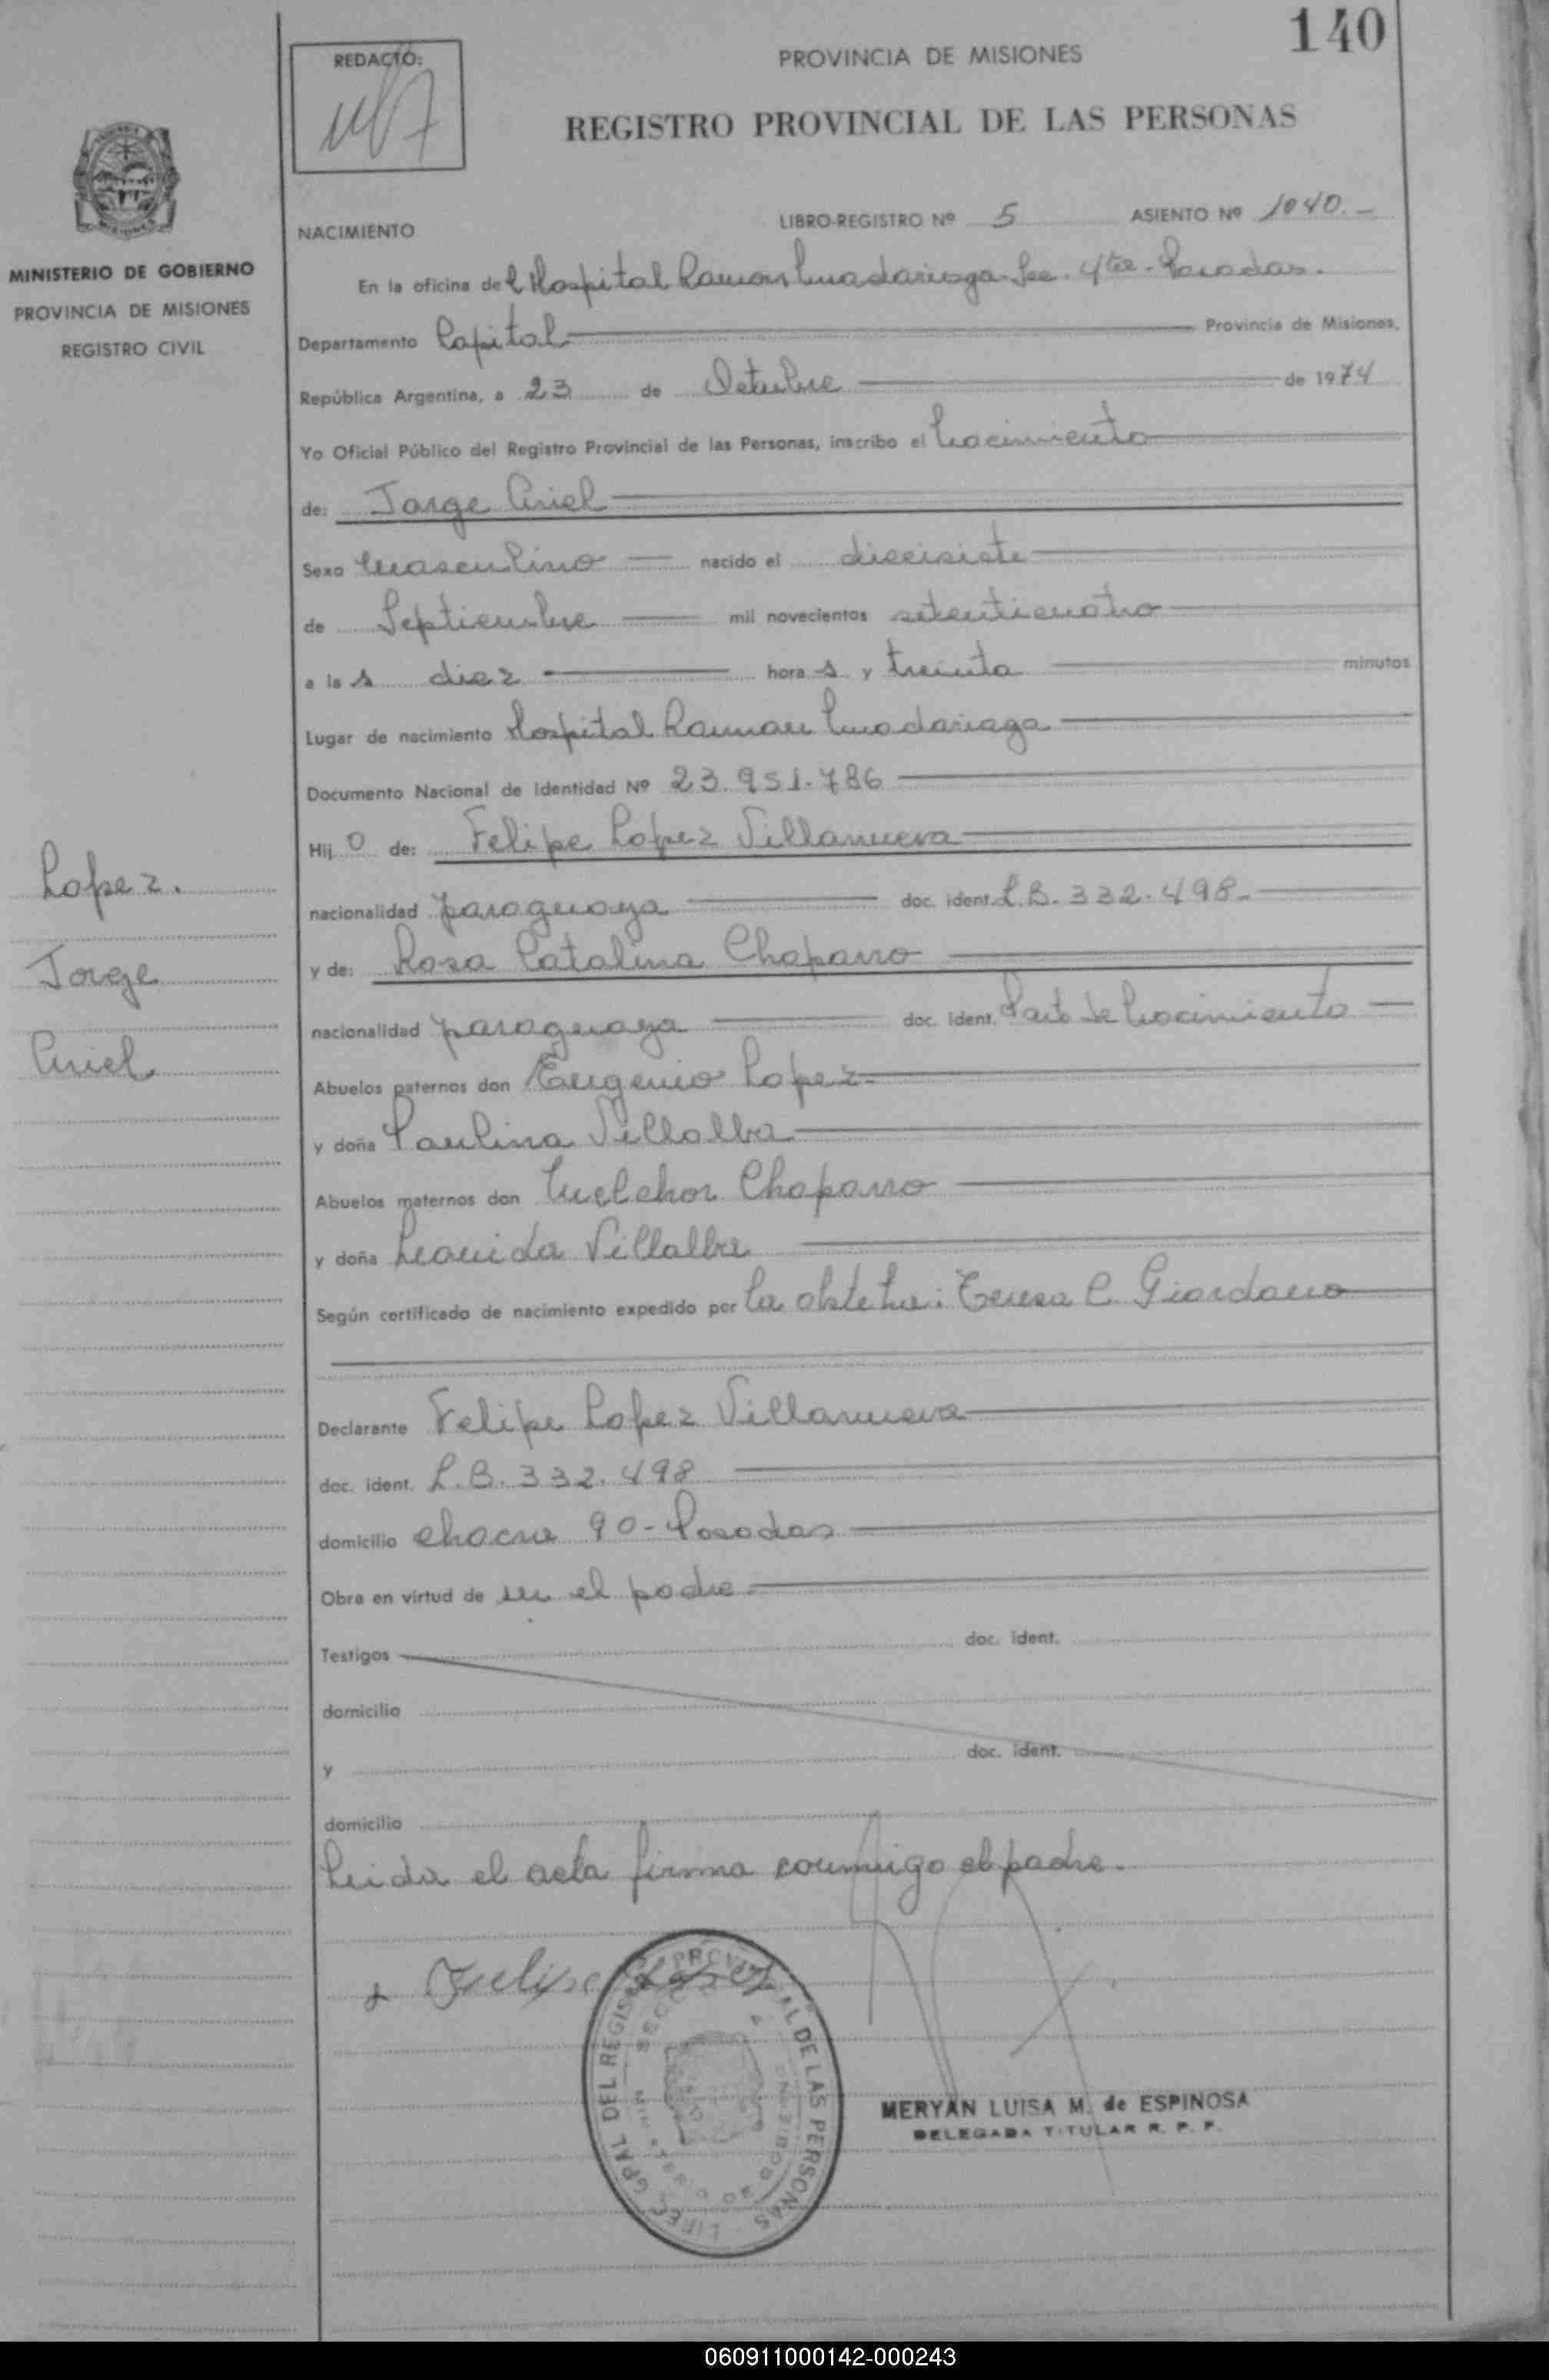 140
REDACTÓ:
PROVINCIA DE MISIONES
REGISTRO PROVINCIAL DE LAS PERSONAS
MINISTERIO DE GOBIERNO
PROVINCIA DE MISIONES
REGISTRO CIVIL
NACIMIENTO LIBRO-REGISTRO Nº 5 ASIENTO Nº 1040.-
En la oficina del Hospital Ramon Madariaga Sec. 4ta - Posadas.
Departamento Capital Provincia de Misiones,
República Argentina, a 23 de Octubre de 1974
Yo Oficial Público del Registro Provincial de las Personas, inscribo el Nacimiento
de: Jorge Ariel
Sexo Masculino nacido el diecisiete
de Septiembre mil novecientos setenticuatro
a las diez horas y treinta minutos
Lugar de nacimiento Hospital Ramon Madariaga
Documento Nacional de Identidad Nº 23.951.786
Hijo de: Felipe Lopez Villanueva
nacionalidad paraguaya doc. ident. L.B. 332.498-
y de: Rosa Catalina Chaparro
nacionalidad paraguaya doc. ident. Parto de Nacimiento
Abuelos paternos don Eugenio Lopez
y doña Paulina Villalba
Abuelos maternos don Melchor Chaparro
y doña Leonida Villalba
Según certificado de nacimiento expedido por la obstetra: Teresa C. Giordano
Declarante Felipe Lopez Villanueva
doc. ident. L.B. 332.498
domicilio chacra 90 - Posadas
Obra en virtud de ser el padre
Testigos doc. ident.
domicilio
y doc. ident.
domicilio
Leida el acta firma conmigo el padre.
Lopez.
Jorge
Ariel
x Felipe Lopez
DEL REGISTRO PROVINCIAL DE LAS PERSONAS
MERYAN LUISA M. de ESPINOSA
DELEGADA TITULAR R. P. P.
060911000142-000243